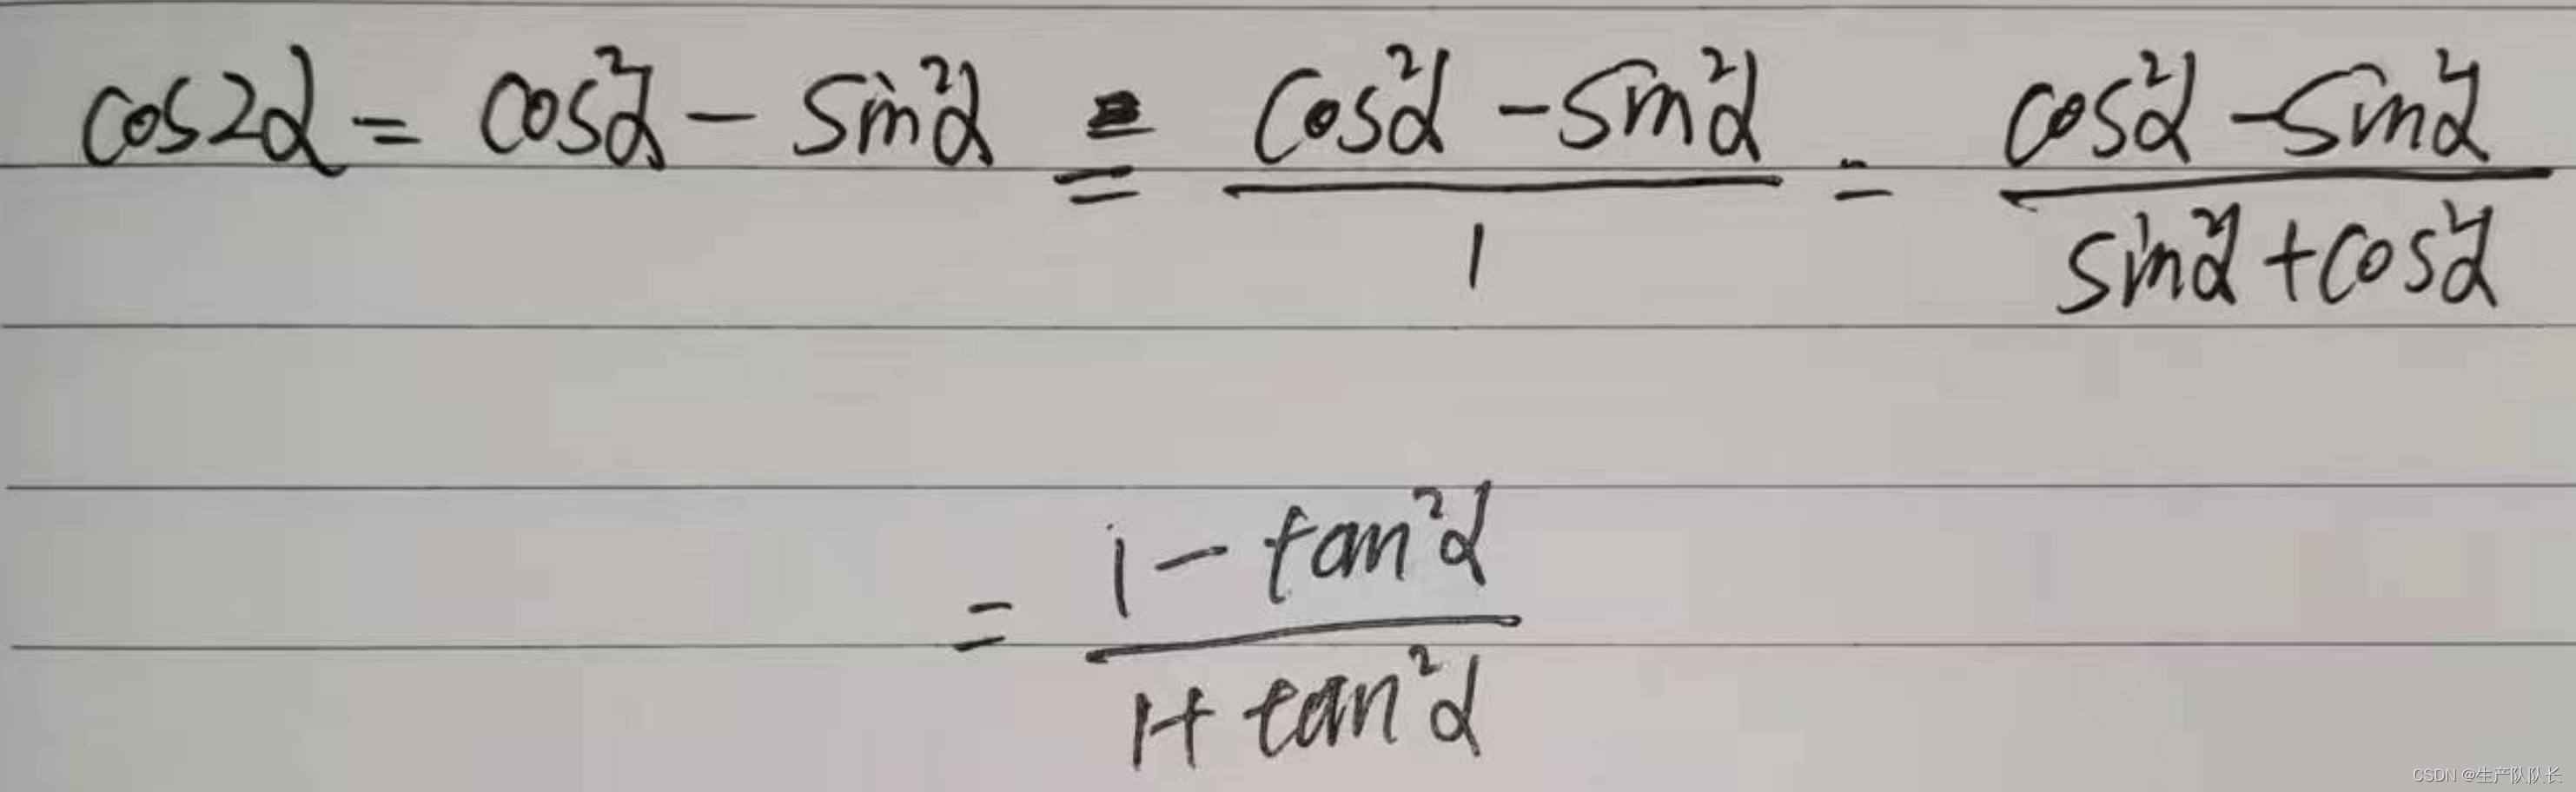 cos2α = cos²α − sin²α = (cos²α − sin²α)/1 = (cos²α − sin²α)/(sin²α + cos²α)
= (1 − tan²α)/(1 + tan²α)
CSDN @生产队队长